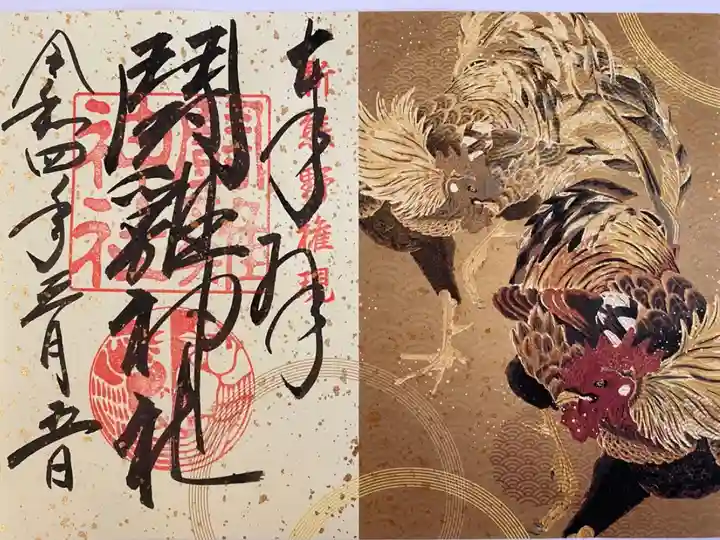 奉拝
新熊野権現
鬪雞神社
鬪雞神社
令和四年三月五日